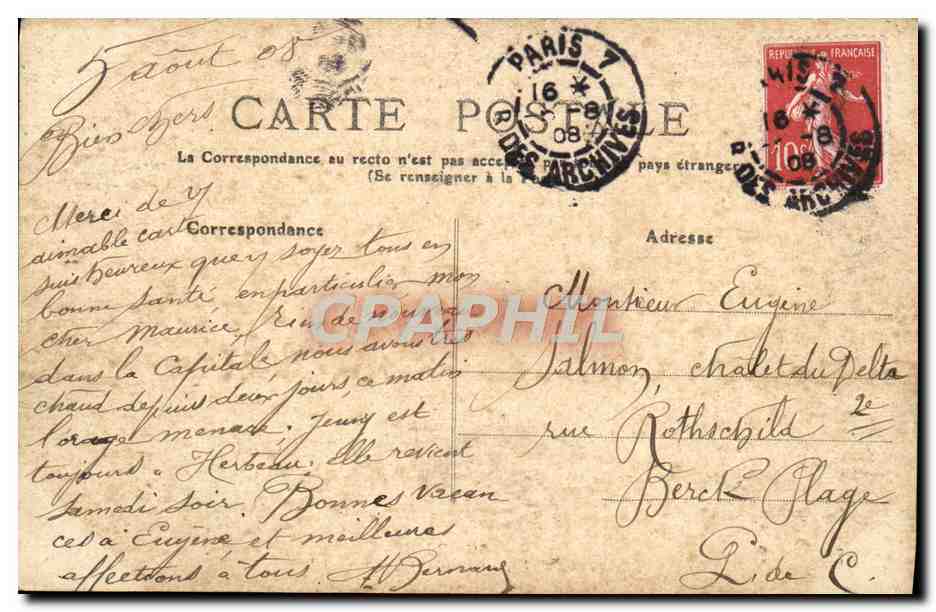 5 août 08
Bien chers
CARTE POSTALE
La Correspondance au recto n'est pas accep pays étranger
(Se renseigner à la
PARIS 7
16 * 8
08
R. DES ARCHIVES
REPUBLIQUE FRANÇAISE
10c
16 * 8
08
R. DES ARCHIVES
Correspondance
Adresse
Merci de
aimable carte
suis heureux que soyez tous en
bonne santé, en particulier mon
cher Maurice. Rien de nouveau
dans la Capitale, nous avons très
chaud depuis deux jours, ce matin
l'orage menace. Jenny est
toujours à Herbeau. Elle revient
samedi soir. Bonnes vacan
ces à Eugène et meilleures
affections à tous
H Bernard
Monsieur Eugène
Salmon, chalet du Delta
rue Rothschild 2e
Berck Plage
P. de C.
CPAPHIL